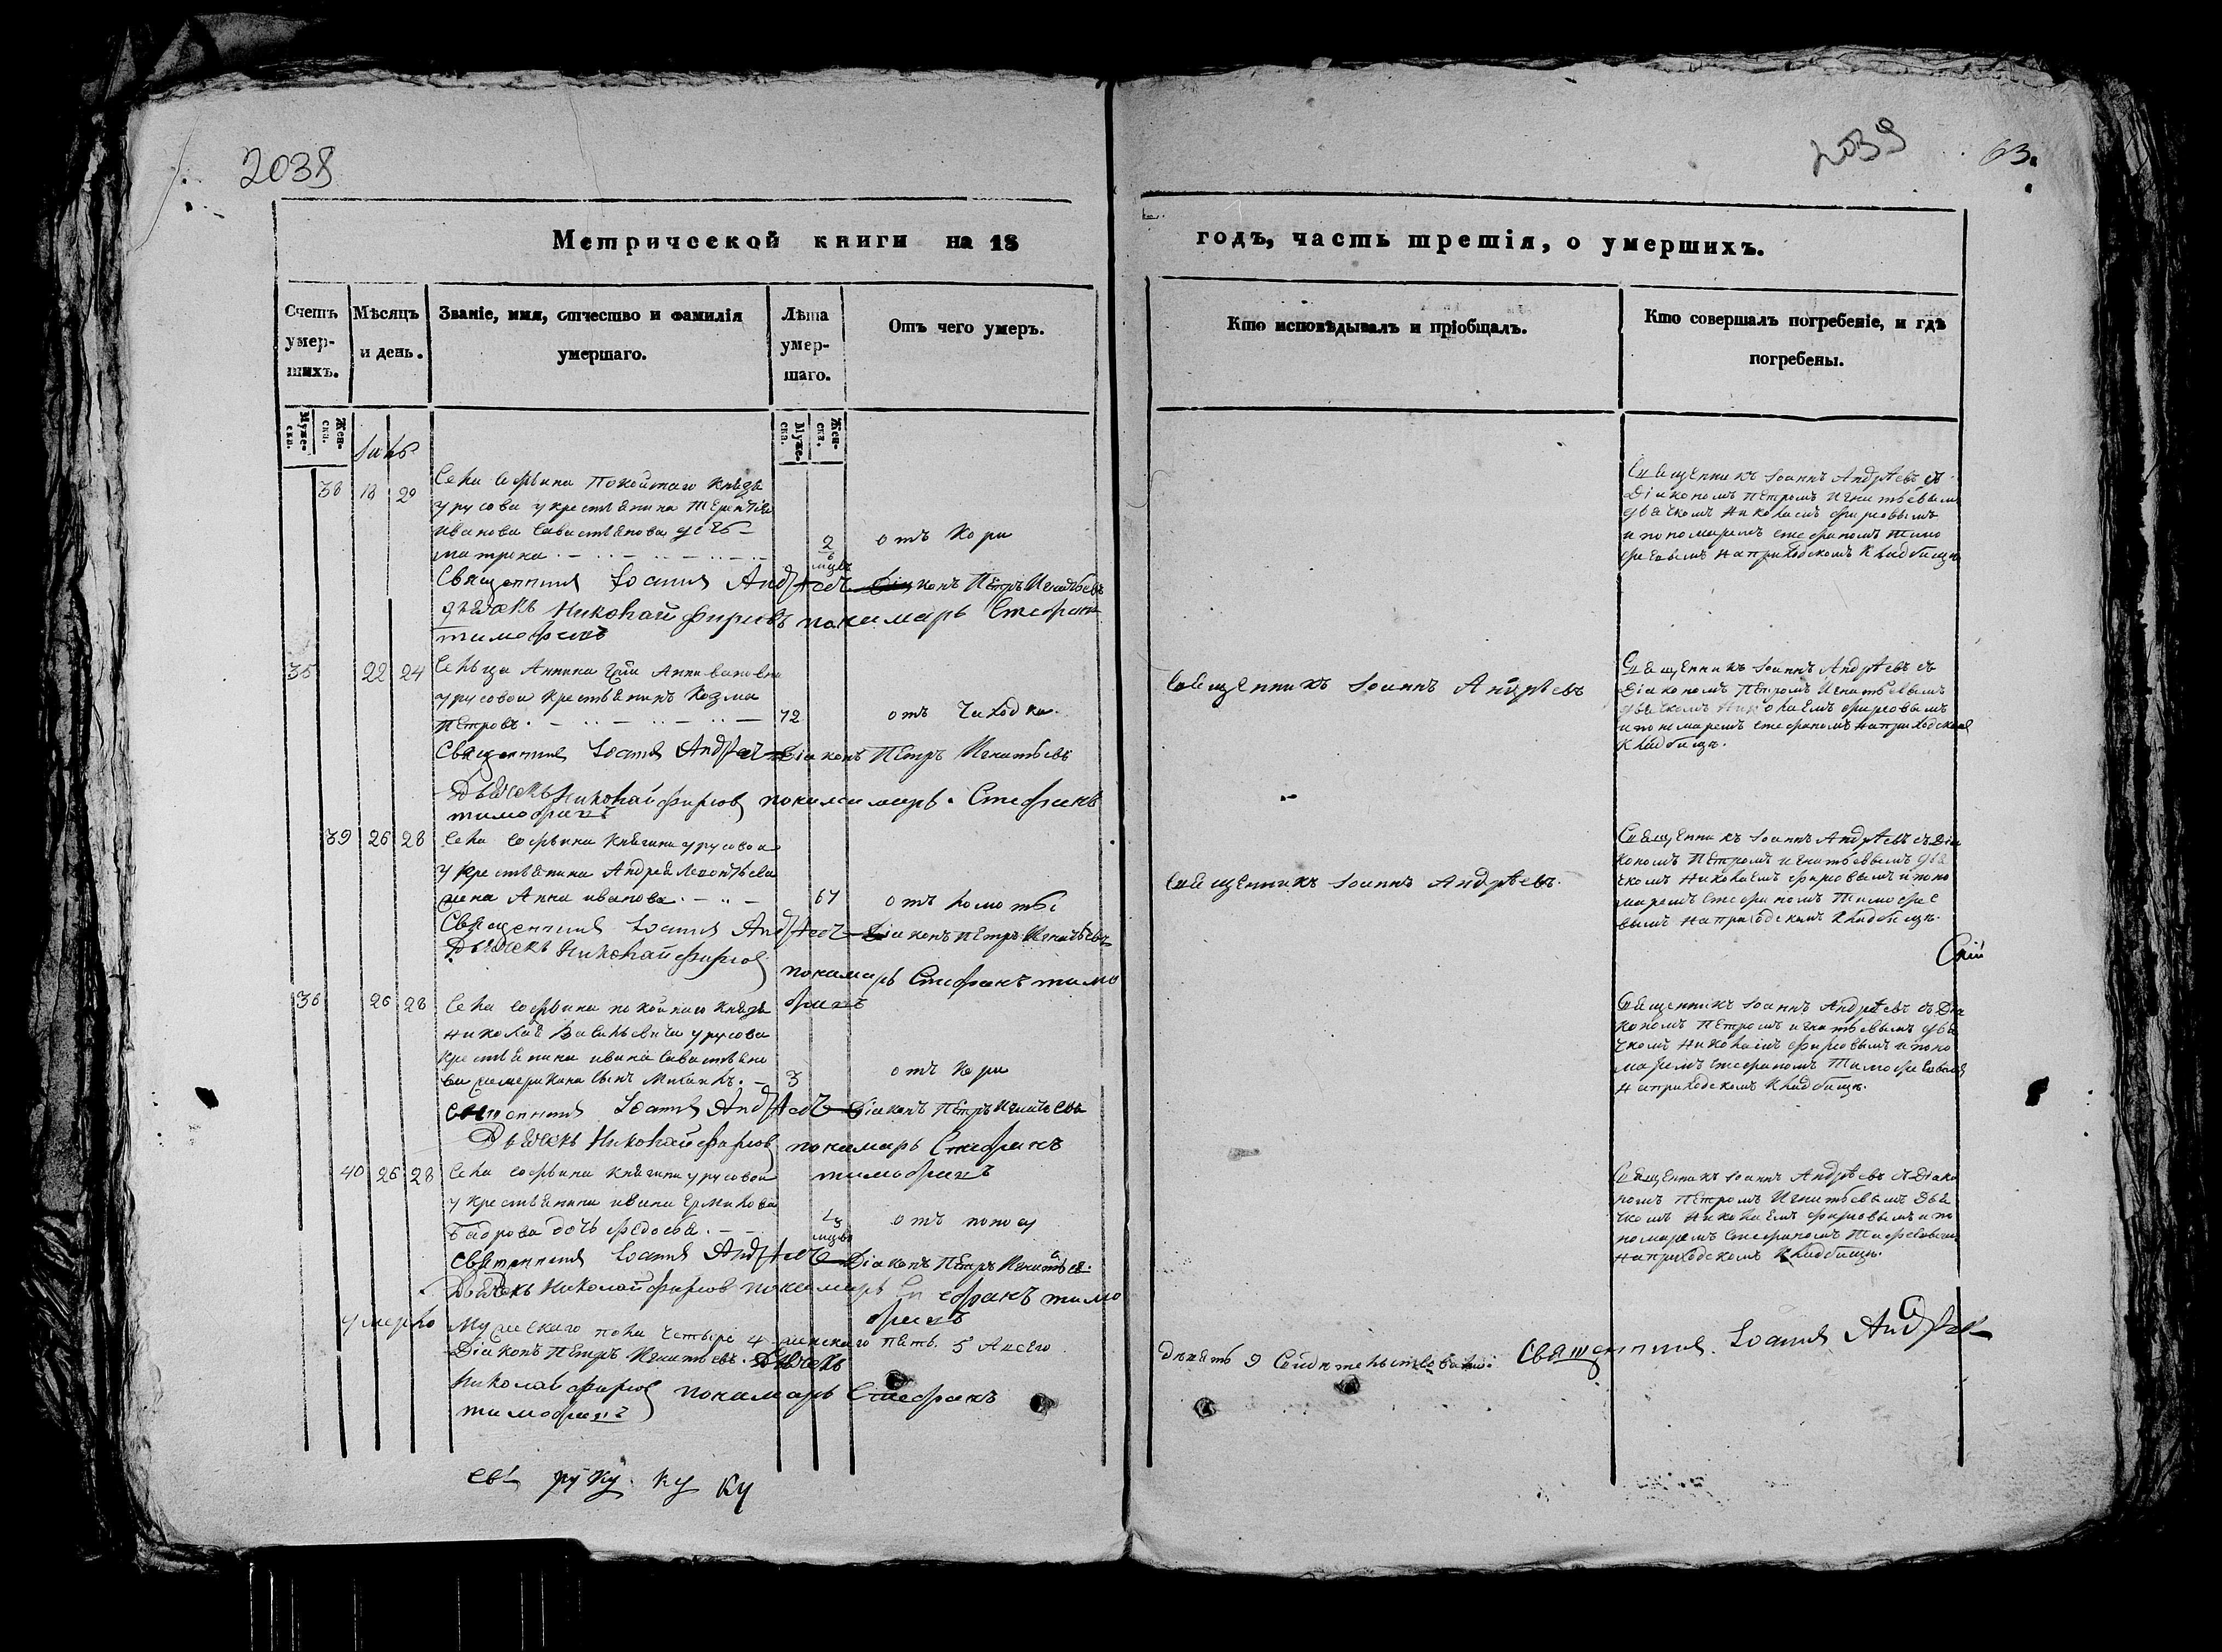 2038
Метрической книги на 18
Счетъ умер-шихъ.
Мѣсяцъ и день.
Званіе, имя, отчество и фамилія умершаго.
Лѣта умер-шаго.
Отъ чего умеръ.
Муже-ска.
Жен-ска.
Муже-ска.
Жен-ска.
38 18 20
Села Софьина покойнаго Князя
урусова у крестьянина Терентія
иванова Савастьянова дочь
матрона
2
6
мцвъ
отъ Кори
Священникъ Іоаннъ Андреевъ Діаконъ Петръ Игнатьевъ
дьячекъ Николай фирсовъ пономарь Стефанъ
тимофеевъ
35 22 24
Сельца Аннина
урусовой крестьянинъ Козма
Петровъ
72
отъ Чаходки
Священникъ Іоаннъ Андреевъ Діаконъ Петръ Игнатьевъ
Дьячекъ Николай фирсовъ Стефанъ
тимофеевъ
39 26 28
Села Софьина Княгини урусовой
у крестьянина Андрея Леонтьева
жена Анна иванова
67
отъ ломоты
Священникъ Іоаннъ Андреевъ Діаконъ Петръ Игнатьевъ
Дьячекъ Николай фирсовъ
пономарь Стефанъ тимо
феевъ
36 26 28
Села Софьина покойнаго Князя
николая Васильевича урусова
крестьянина ивана Савастьяно
ва сынъ
3
отъ Кори
Священникъ Іоаннъ Андреевъ Діаконъ Петръ Игнатьевъ
Дьячекъ Николай фирсовъ пономарь Стефанъ
тимофеевъ
40 26 28
Села Софьина Княгини урусовой
у крестьянина ивана Ермилова
дочь
мцвъ
отъ поносу
Священникъ Іоаннъ Андреевъ Діаконъ Петръ Игнатьевъ
Дьячекъ Николай фирсовъ пономарь Стефанъ тимо
феевъ
умерло мужескаго пола четыре 4 женскаго пять 5 Авсего
Діаконъ Петръ Игнатьевъ. Дьячекъ
Николай фирсовъ пономарь Стефанъ
тимофеевъ
руку ку ку
2039
63.
годъ, часть третія, о умершихъ.
Кто исповѣдывалъ и пріобщалъ.
Кто совершалъ погребеніе, и гдѣ погребены.
Священникъ Іоаннъ Андрѣевъ съ
Діакономъ Петромъ Игнатьевымъ
дьячкомъ Николаемъ фирсовымъ
и пономаремъ стефаномъ тимо
феевымъ на приходскомъ кладбищѣ
Священникъ Іоаннъ Андрѣевъ
Священникъ Іоаннъ Андрѣевъ съ
Діакономъ Петромъ Игнатьевымъ
дьячкомъ Николаемъ фирсовымъ
и пономаремъ стефаномъ на приходскомъ
кладбищѣ.
Священникъ Іоаннъ Андрѣевъ.
Священникъ Іоаннъ Андрѣевъ съ Діа
кономъ Петромъ игнатьевымъ дья
чкомъ николаемъ фирсовымъ и поно
маремъ Стефаномъ Тимофее
вымъ на приходскомъ кладбищѣ.
Священникъ Іоаннъ Андрѣевъ съ Діа
кономъ Петромъ игнатьевымъ дья
чкомъ николаемъ фирсовымъ и поно
маремъ стефаномъ Тимофеевымъ
на приходскомъ кладбищѣ.
Священникъ Іоаннъ Андрѣевъ съ Діако
номъ Петромъ Игнатьевымъ Дья
чкомъ николаемъ фирсовымъ и по
номаремъ Стефаномъ
на приходскомъ кладбищѣ.
девять 9 Свидѣтельствовалъ: Священникъ Іоаннъ Андреевъ